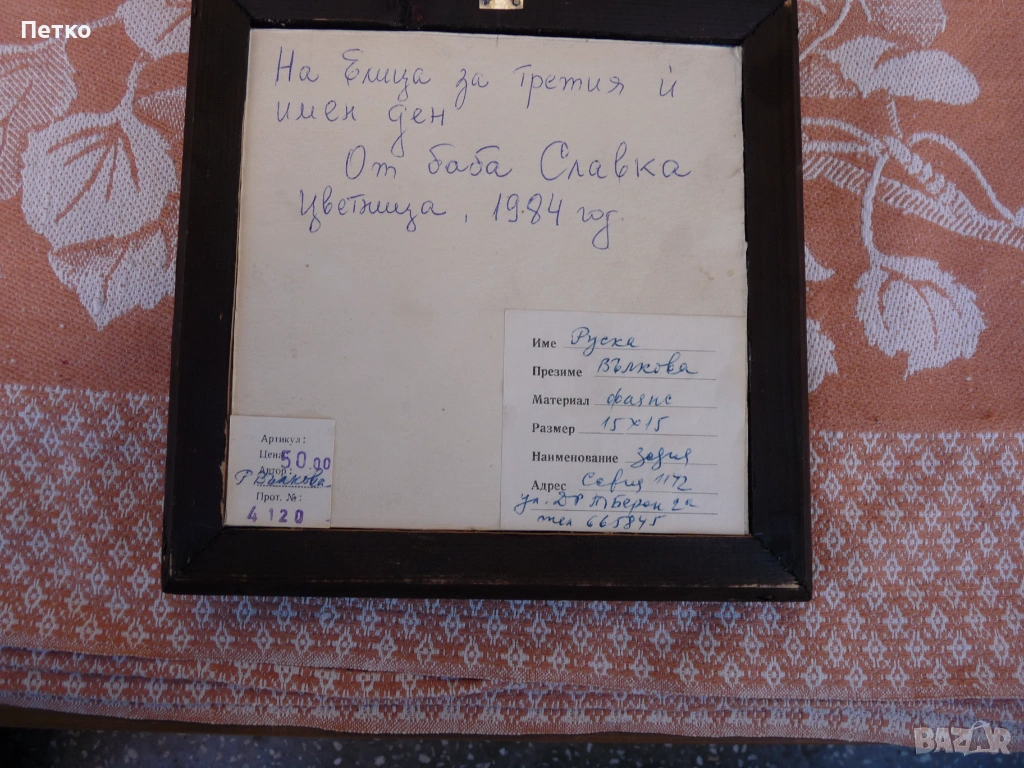 Петко
На Елица за третия ѝ
имен ден
От баба Славка
Цветница, 1984 год.
Име Руска
Презиме Вълкова
Материал фаянс
Размер 15x15
Наименование зодия
Адрес София 1172
ул. Д-р П Берон 2а
тел 665845
Артикул:
Цена 50.00
Автор:
Р Вълкова
Прот. №:
4120
BAZAR